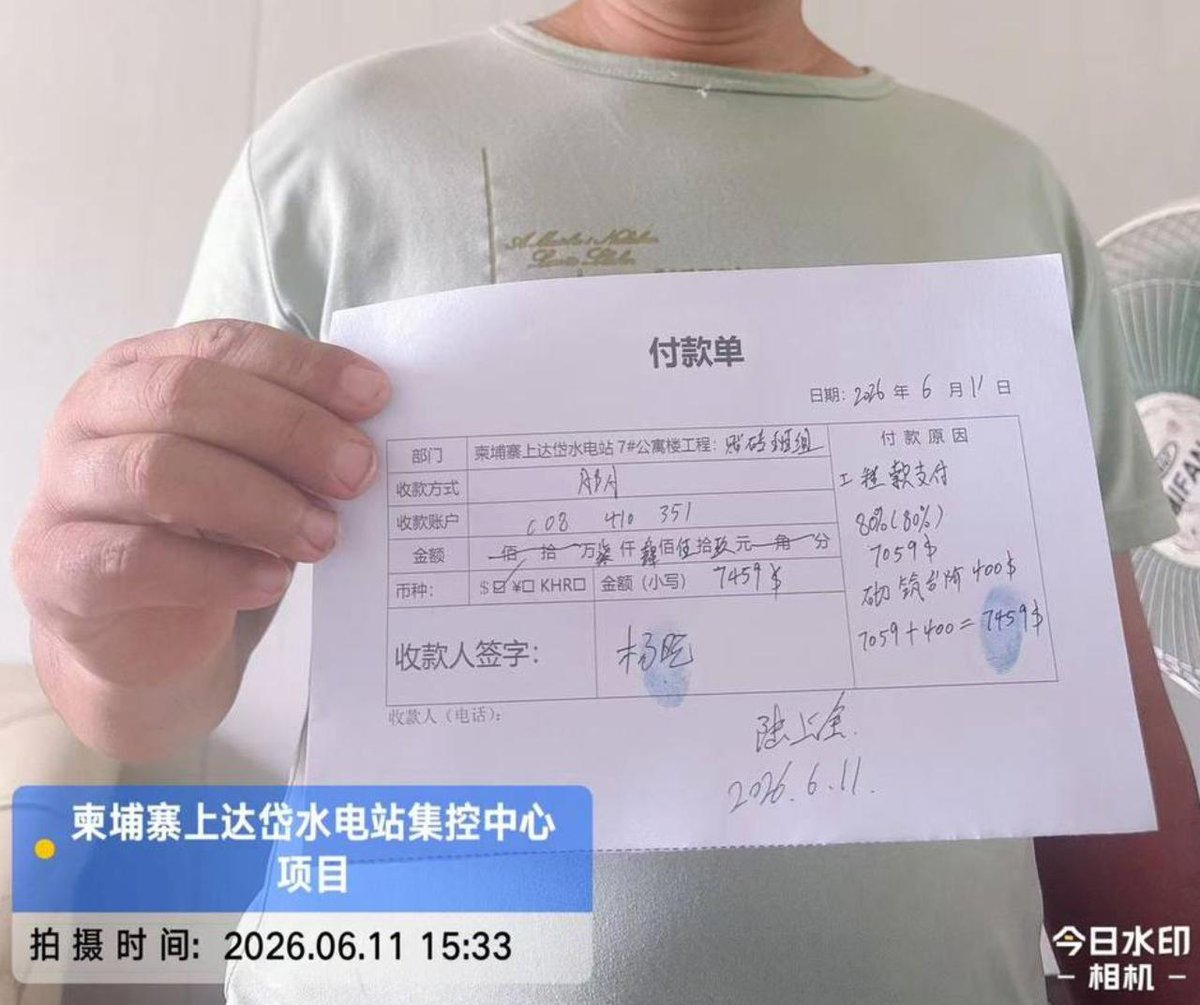 付款单
日期: 2026 年 6 月 11 日
部门 柬埔寨上达岱水电站 7#公寓楼工程: 贴砖班组
收款方式 ABA
收款账户 008 410 351
金额 佰 拾 万 柒 仟 肆 佰 伍 拾 玖 元 角 分
币种: $☑ ¥□ KHR□ 金额 (小写) 7459 $
收款人签字:
收款人 (电话):
付 款 原 因
工程款支付
80%(80%)
7059 $
砌筑台阶 400 $
7059 + 400 = 7459 $
陆上金.
2026. 6. 11.
柬埔寨上达岱水电站集控中心
项目
拍 摄 时 间: 2026.06.11 15:33
今日水印
相机